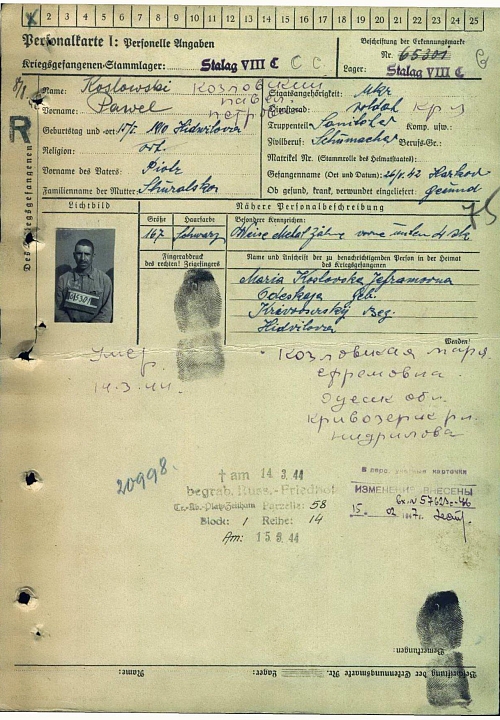 X 2 3 4 5 6 7 8 9 10 11 12 13 14 15 16 17 18 19 20 21 22 23 24 25
Personalkarte I: Personelle Angaben
Kriegsgefangenen-Stammlager: Stalag VIII C C C
Beschriftung der Erkennungsmarke
Nr. 65301
Lager: Stalag VIII C
Des Kriegsgefangenen
R
Name: Koslowski Козловский
Vorname: Pawel Павел
Петрович
Geburtstag und -ort: Hidvilowa
Religion: ort.
Vorname des Vaters: Piotr
Familienname der Mutter:
Staatsangehörigkeit: Ukr.
Dienstgrad: Soldat
Truppenteil: Sanitäter Komp. usw.:
Zivilberuf: Schumacher Berufs-Gr.:
Matrikel Nr. (Stammrolle des Heimatstaates):
Gefangennahme (Ort und Datum): Harkow
Ob gesund, krank, verwundet eingeliefert: gesund
Lichtbild
Nähere Personalbeschreibung
Größe Haarfarbe Besondere Kennzeichen:
167 schwarz Weise Metal Zähne vorne unten 4 stk
Fingerabdruck
des rechten! Zeigefingers
Name und Anschrift der zu benachrichtigenden Person in der Heimat
des Kriegsgefangenen
Maria Koslowska Jeframowna
Odeskaja Geb.
Hidvilowa
Wenden!
Умер
14.3.44.
Козловская Мария
Ефремовна
Одесск обл.
Кривозерск рн.
20998.
† am 14 3. 44
begrab. Russ.-Friedhof
Parzelle: 58
Block: 1 Reihe: 14
Am: 15 3. 44
ИЗМЕНЕНИЯ ВНЕСЕНЫ
Bemerkungen:
Beschriftung der Erkennungsmarke Nr.
Lager:
Name: